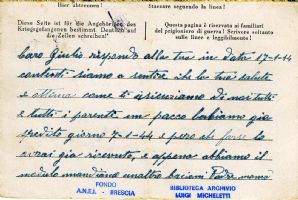 Hier abtrennen!
Staccare seguendo la linea!
Diese Seite ist für die Angehörigen des Kriegsgefangenen bestimmt. Deutlich auf die Zeilen schreiben!
Questa pagina è riservata ai familiari del prigioniero di guerra! Scrivere soltanto sulle linee e leggibilmente!
Caro Giulio rispondo alla tua in data 17-1-44
contenti siamo a sentire che la tua salute
e ottima come ti assicuriamo di noi tutti
e tutti i parenti un pacco labiamo gia
spedito giorno 7-1-44 e pero che forse lo
avrai gia ricevuto, e appena abbiamo il
modulo mandiamo unaltro bacioni Padre mama
FONDO
A.N.E.I. - BRESCIA
BIBLIOTECA ARCHIVIO
LUIGI MICHELETTI